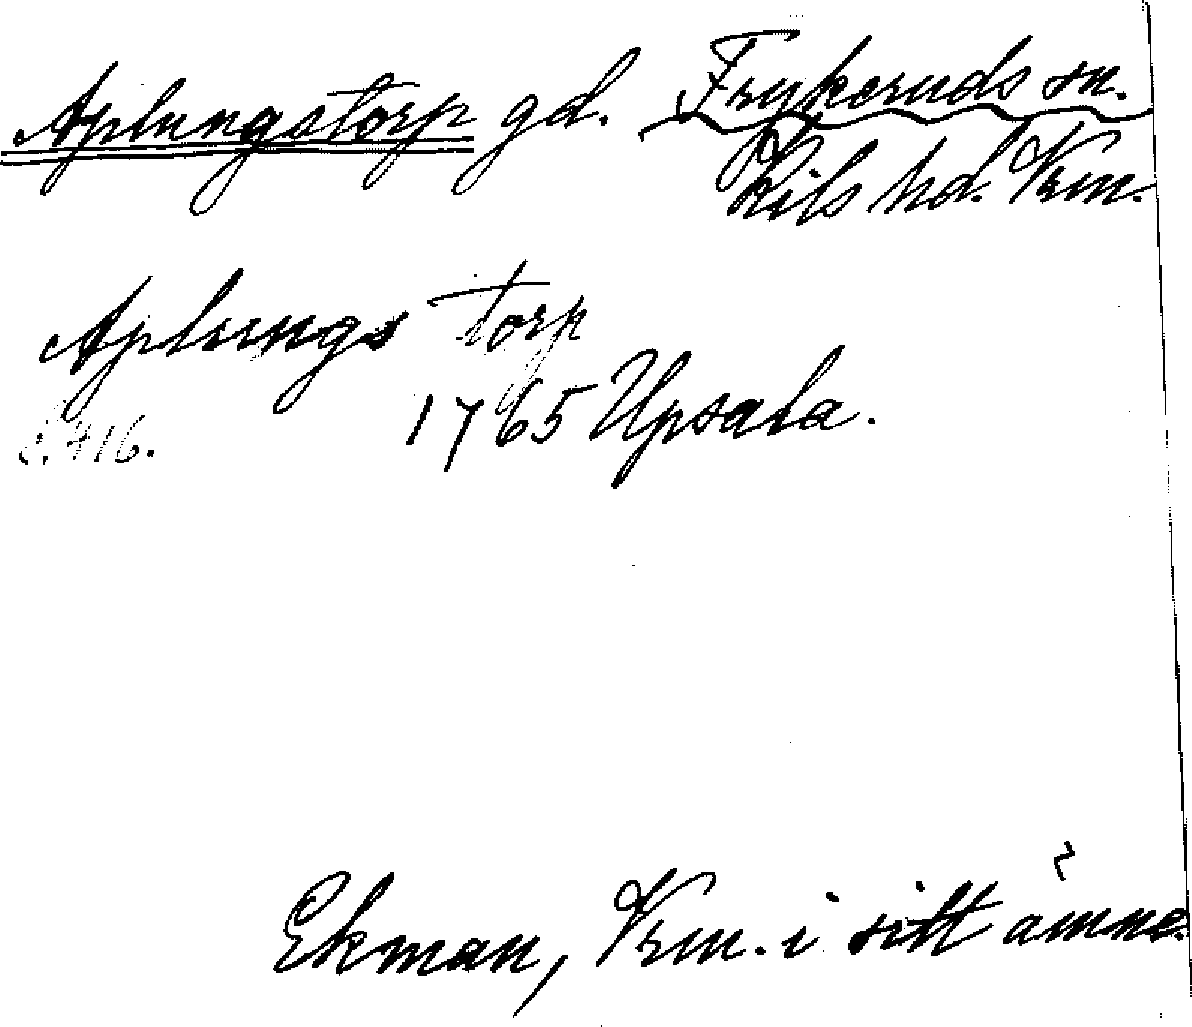 Aplungstorp gd. Frykeruds sn.
Kils hd. Vrm.
Aplungs torp
1765 Upsala.
s. 716.
Ekman, Vrm. i sitt ämne.